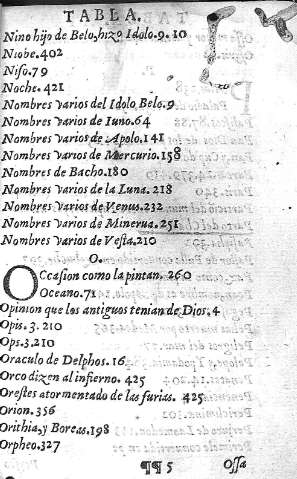 TABLA.
Nino hijo de Belo, hizo Idolo. 9. 10
Niobe. 402
Niso. 79
Noche. 421
Nombres varios del Idolo Belo. 9
Nombres varios de Iuno. 64
Nombres varios de Apolo. 141
Nombres varios de Mercurio. 158
Nombres de Bacho. 180
Nombres varios de la Luna. 218
Nombres varios de Venus. 232
Nombres varios de Minerua. 251
Nombres varios de Vesta. 210
O.
OCcasion como la pintan. 260
Oceano. 71
Opinion que los antiguos tenian de Dios. 4
Opis. 3. 210
Ops. 3. 210
Oraculo de Delphos. 16
Orco dizen al infierno. 425
Orestes atormentado de las furias. 425
Orion. 356
Orithia, y Boreas. 198
Orpheo. 327
¶¶ 5 Ossa